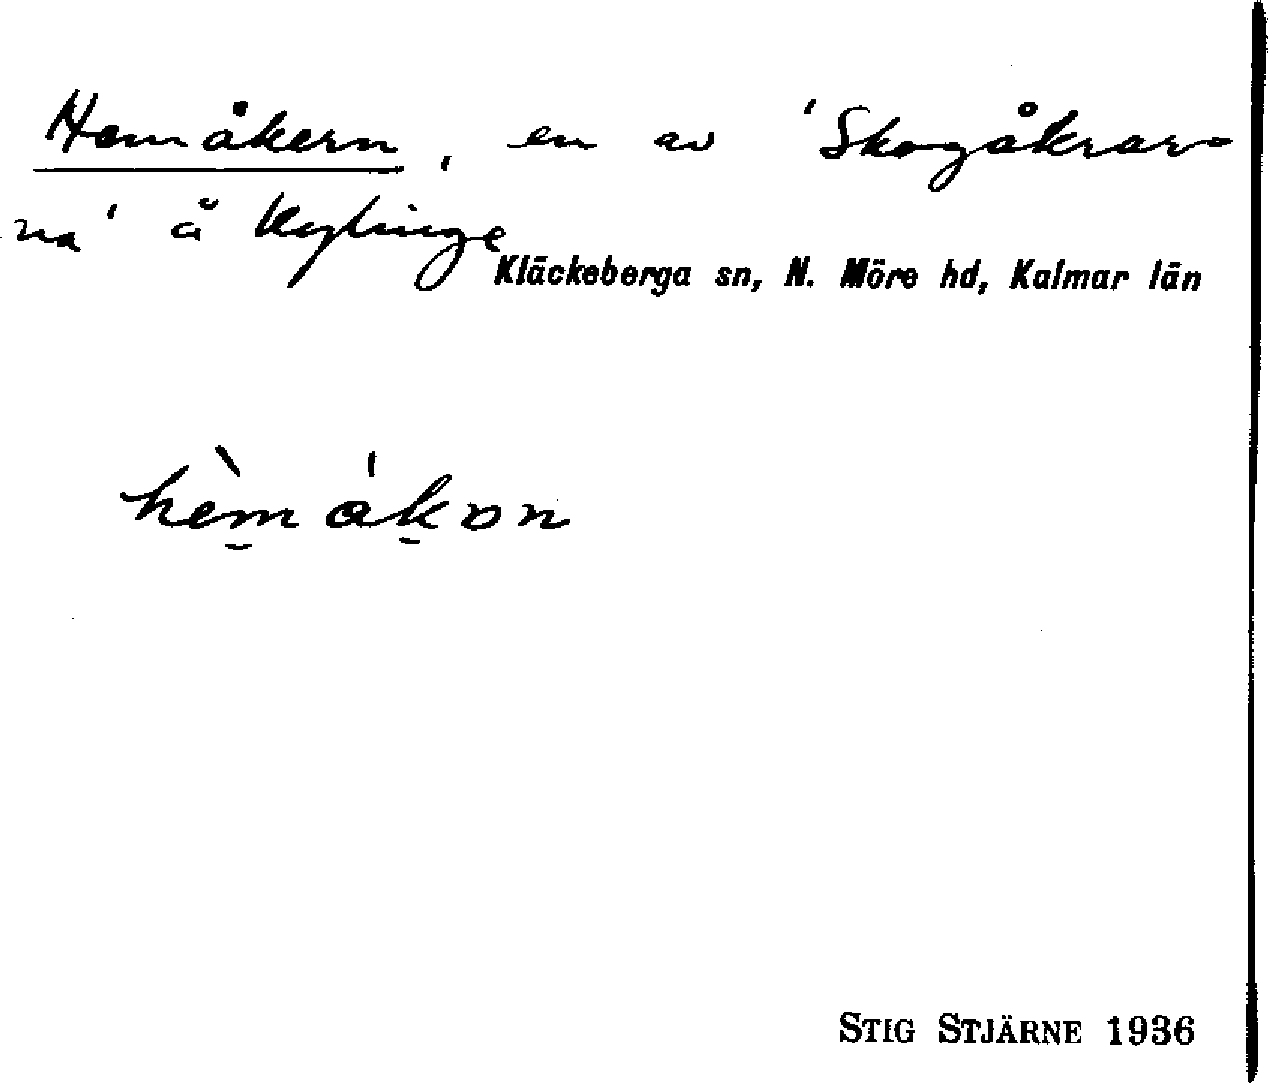 Hemåkern, en av 'Skogåkrar-
na' å
Kläckeberga sn, N. Möre hd, Kalmar län
STIG STJÄRNE 1936